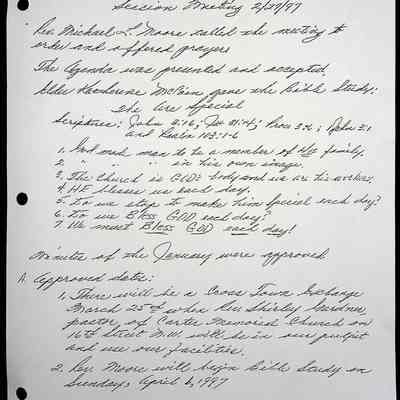 Session Meeting 2/27/97
Rev. Michael L. Moore called the meeting to
order and offered prayer.
The Agenda was presented and accepted.
Elder gave the Bible Study:
We are Special
Scriptures: John 3:16; Prov 3:6; John 3:1
and Psalm 103:1-6
1. God made man to be a member of HIS family.
2. " " " in his own image.
3. The Church is GOD'S body and we are his workers.
4. HE blesses us each day.
5. Do we stop to make him special each day?
6. Do we Bless GOD each day?
7. We must Bless GOD each day!
Minutes of the January were approved
A. Approved dates:
1. There will be a Cross Town Exchange
March 25th when Rev. Shirley
pastor of Carter Memorial Church on
16th Street N.W. will be in our pulpit
and use our facilities.
2. Rev. Moore will begin Bible Study on
Sunday, April 6, 1997